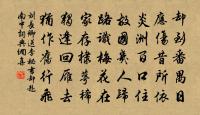 却到番禺日
應傷昔所依
炎洲百口住
故國幾人歸
路識梅花在
家存棣萼稀
獨逢回雁去
猶作舊行飛
劉長卿送李秘書却赴
南中詞典網集